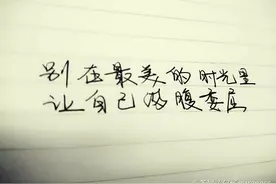 别在最美的时光里
让自己满腹委屈